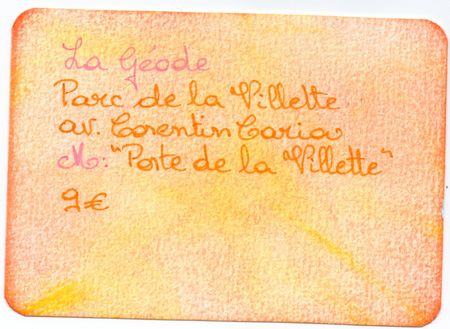 La Géode
Parc de la Villette
av. Corentin Cariou
M: "Porte de la Villette"
9€